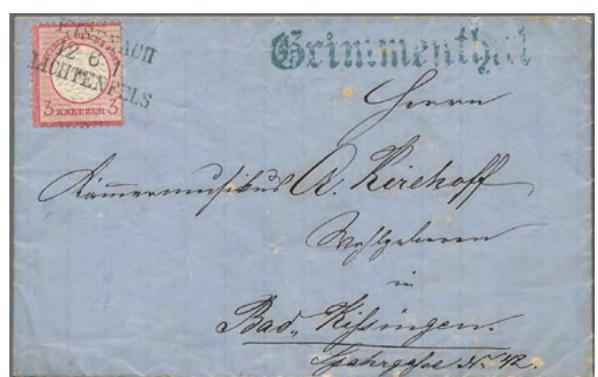 EISENACH
12 6 I
LICHTENFELS
3 KREUZER 3
Grimmenthal
Herrn
Kam̅ermusikus A. Kirchoff
Wohlgeboren
in
Bad Kissingen.
No 42.